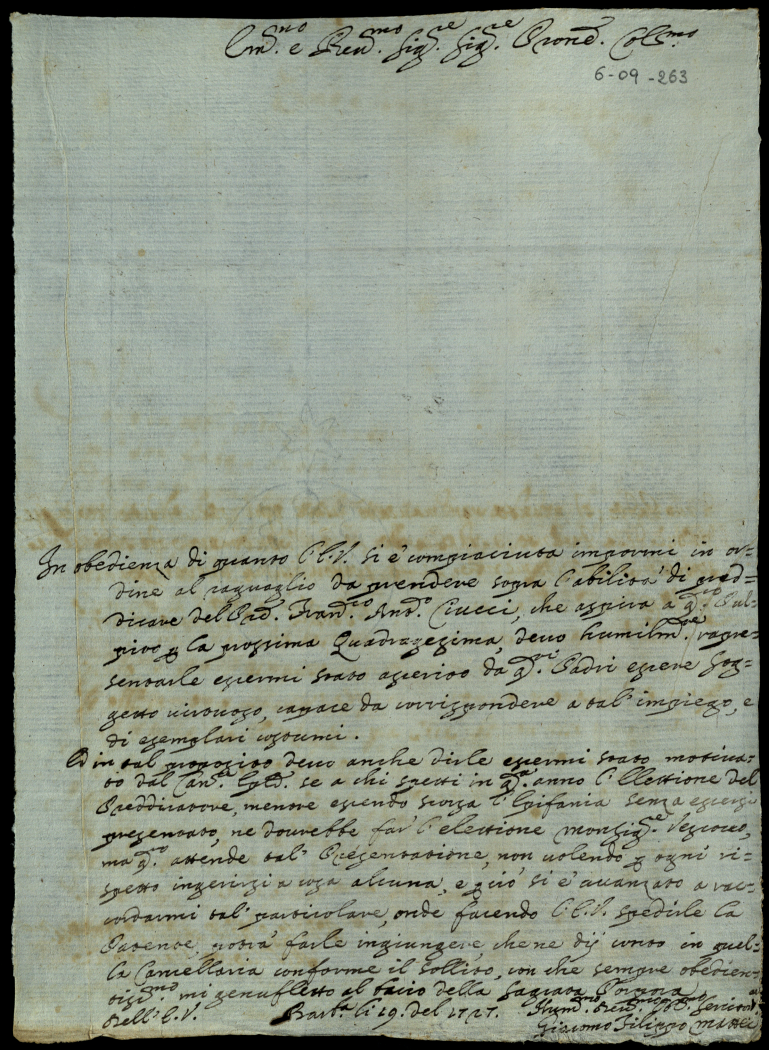 Em.mo e Rev.mo Sig.re Sig.re Prone. Col.mo
6-09-263
In obedienza di quanto l'E.V. si è compiaciuta impormi in or=
dine al raguaglio da prendere sopra l'abilità di pred=
dicare del Pad. Fran.co Ant.o Ciucci, che aspira a q.to Pul=
pito p la prossima Quadragesima, devo humilm.te rapre=
sentarle essermi stato asserito da q.ti Padri essere Sog=
getto virtuoso, capace da corrispondere a tal'impiego, e
di esemplari costumi.
Ed in tal proposito devo anche dirle essermi stato motiva=
to dal Can.co se a chi spetti in q.to anno l'Elettione del
Preddicatore, mentre essendo scorsa l'Epifania senza essersi
presentato, ne dovrebbe far l'elettione Monsig.re Vescovo,
ma q.to attende tal Presentatione, non volendo p ogni ri=
spetto ingerirsi a cosa alcuna, e p ciò si è avanzato a rac=
cordarmi tal particolare, onde facendo l'E.V. spedirle la
Patente, potrà farle ingiungere, che ne dij conto in quel=
la Cancellaria conforme il sollito, con che sempre obedien=
tiss.mo mi genufletto al bacio della Sagrata Porpora
dell'E.V. Barb.a li 19. del 1727. Hum.mo Dev. Obb. Servit.
Giacomo Filippo Mattei